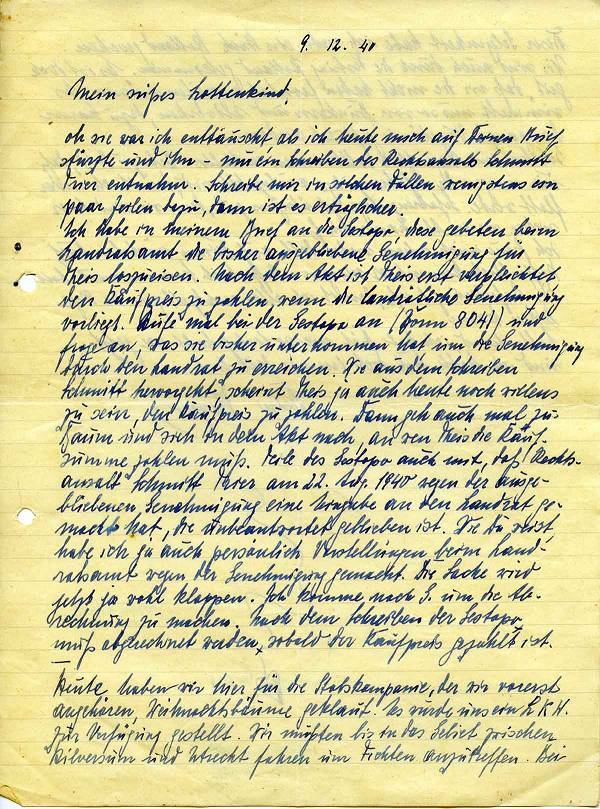 9. 12. 40
Mein süßes Lottenkind,
oh sie war ich enttäuscht, als ich heute mich auf Deinen Brief
stürzte und ihm – nur ein Schreiben des Rechtsanwalts Schmitt
Trier entnahm. Schreibe mir in solchen Fällen wenigstens ein
paar Zeilen dazu, dann ist es erträglicher.
Ich habe in meinem Brief an die Gestapo, diese gebeten beim
Landratsamt die bisher ausgebliebene Genehmigung für
Theis loszueisen. Nach dem Akt ist Theis erst verpflichtet
den Kaufpreis zu zahlen, wenn die landrätliche Genehmigung
vorliegt. Rufe mal bei der Gestapo an (Bonn 8041) und
frage an, was sie bisher unternommen hat um die Genehmigung
durch den Landrat zu erreichen. Wie aus dem Schreiben
Schmitt hervorgeht, scheint Theis ja auch heute noch willens
zu sein, den Kaufpreis zu zahlen. Dann geh auch mal zu
Baum und sieh in dem Akt nach, an wen Theis die Kauf-
summe zahlen muß. Teile der Gestapo auch mit, daß Rechts-
anwalt Schmitt Trier am 22. Aug. 1940 wegen der ausge-
bliebenen Genehmigung eine Eingabe an den Landrat ge-
macht hat, die unbeantwortet geblieben ist. Wie Du weist,
habe ich ja auch persönlich Vorstellungen beim Land-
ratsamt wegen der Genehmigung gemacht. Die Sache wird
jetzt ja wohl klappen. Ich komme nach S. um die Ab-
rechnung zu machen. Nach dem Schreiben der Gestapo
muß abgerechnet werden, sobald der Kaufpreis gezahlt ist.
Heute haben wir hier für die Stabskompanie, der wir vorerst
angehören, Weihnachtsbäume geklaut. Es wurde uns ein L.K.W.
zur Verfügung gestellt. Wir mußten bis in das Gebiet zwischen
Hilversum und Utrecht fahren um Fichten anzutreffen. Bei